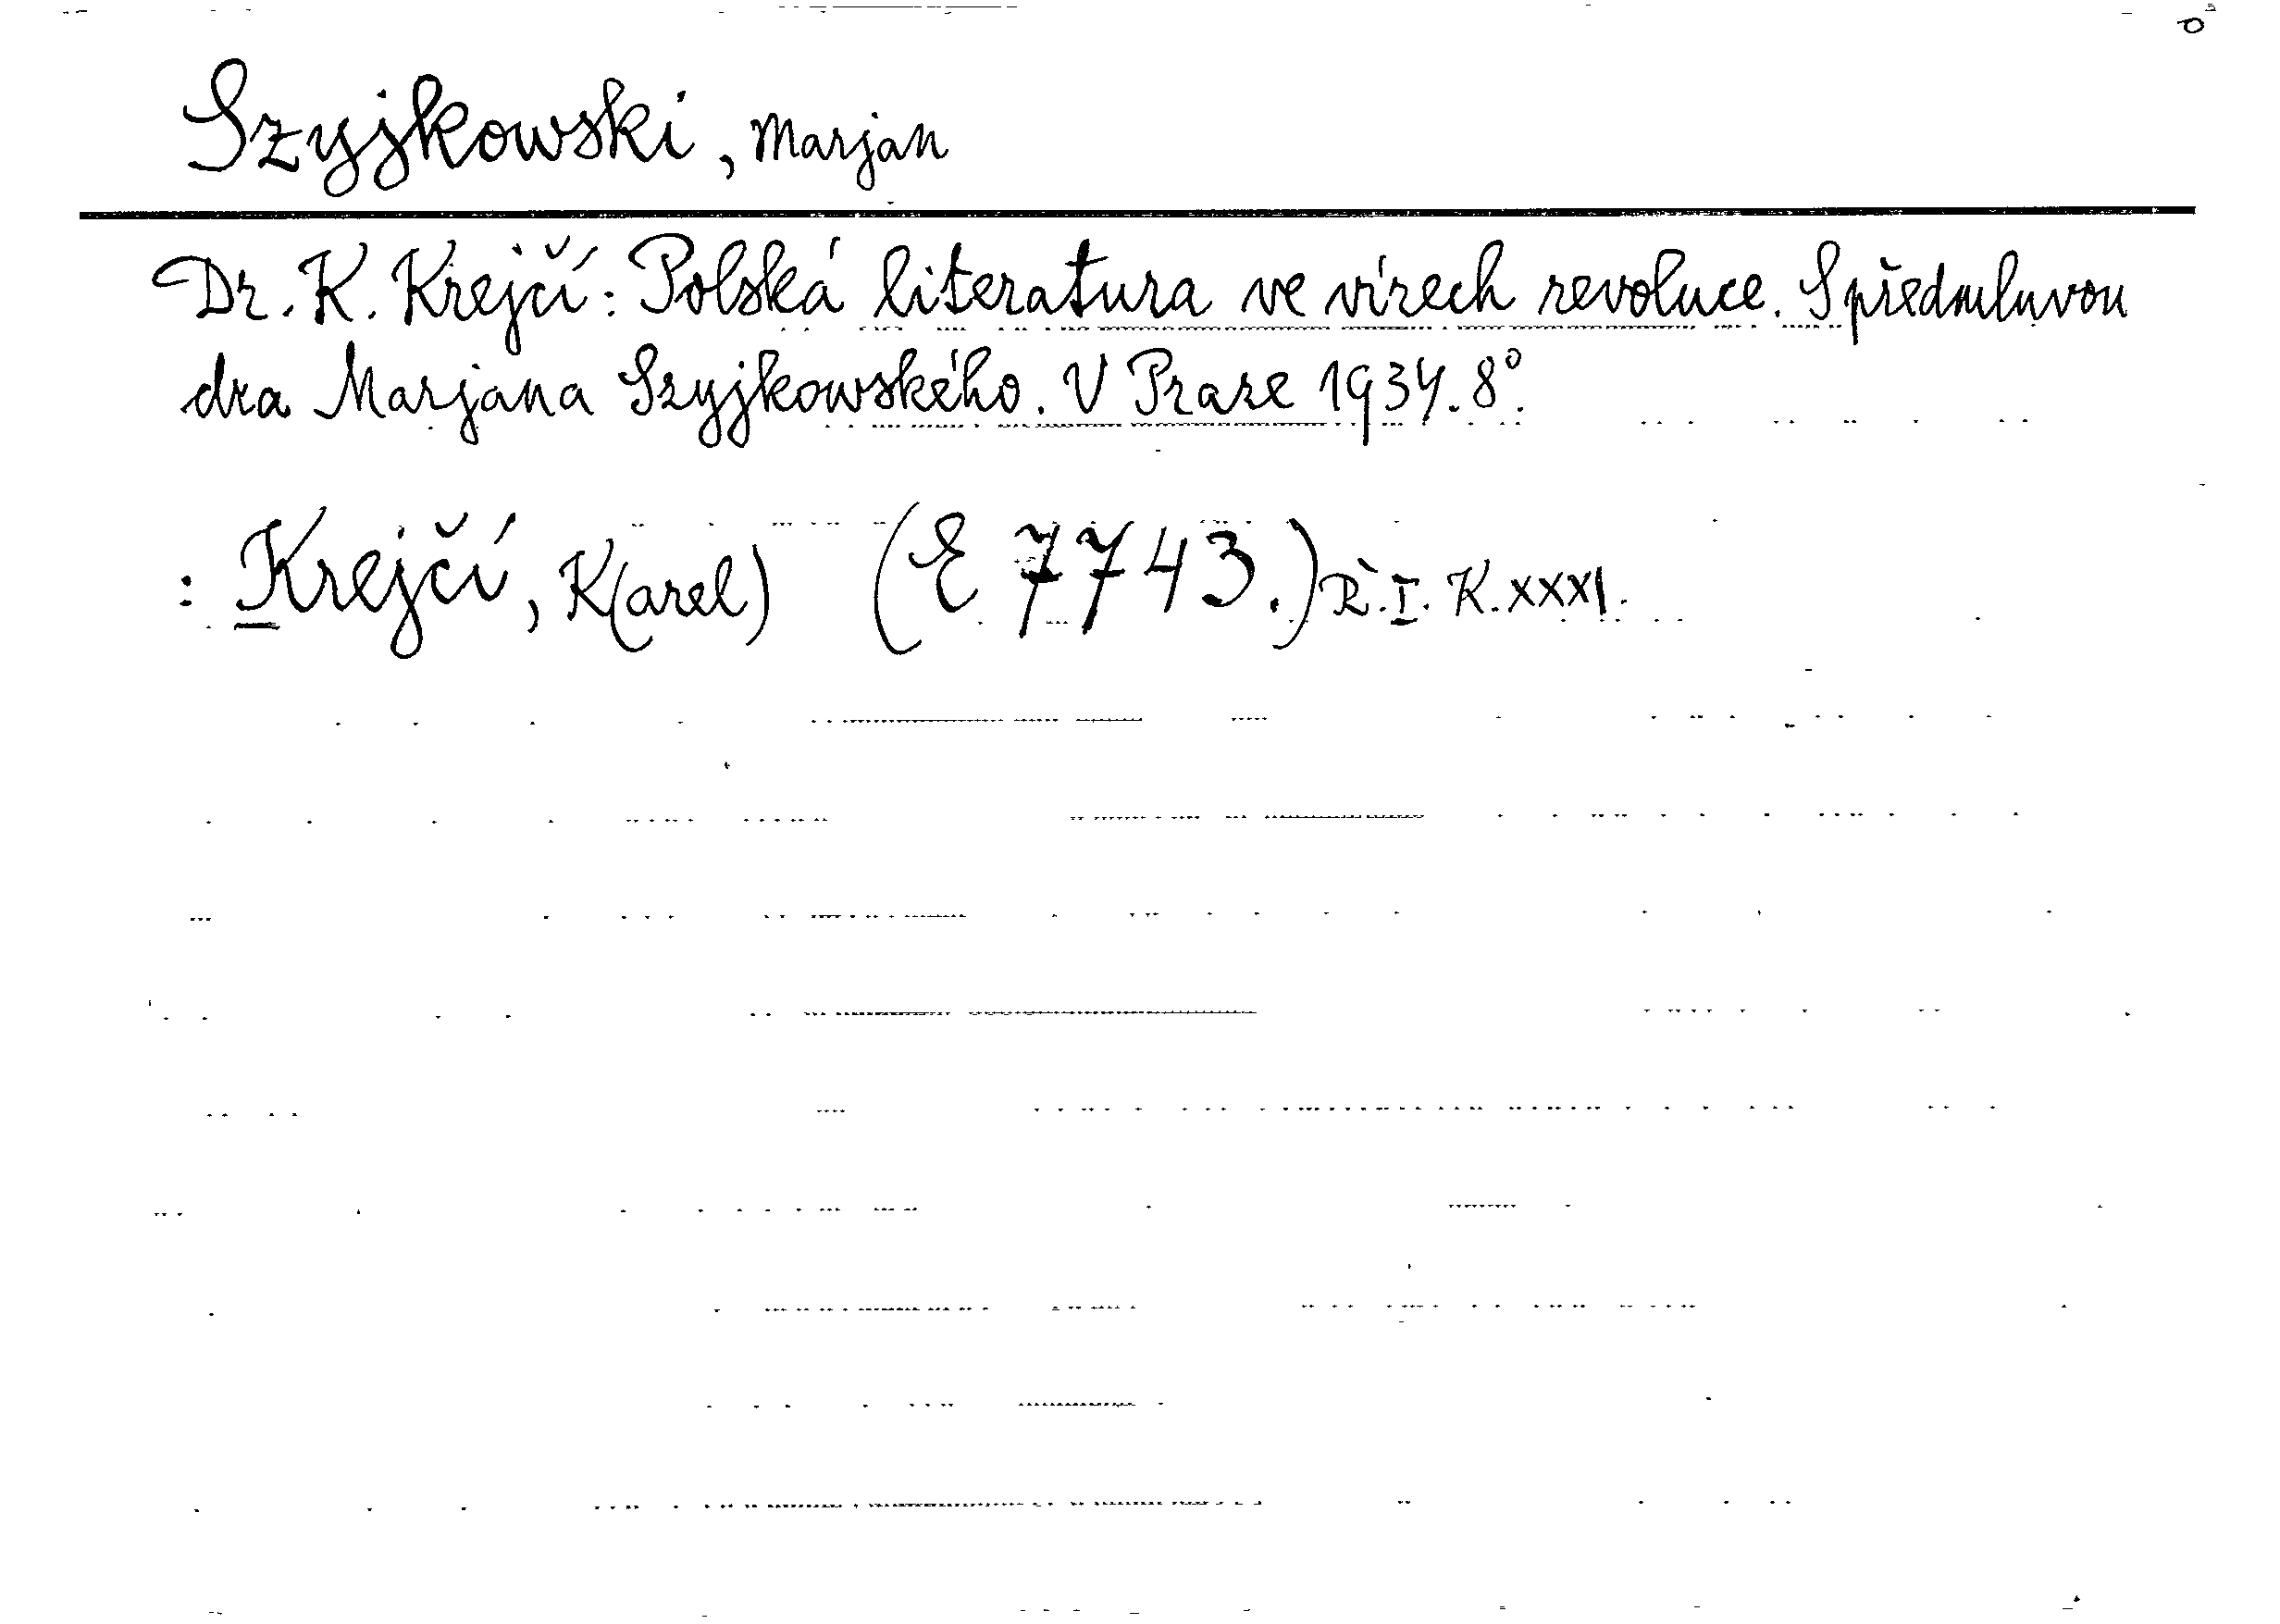 Szyjkowski, Marjan
Dr. K. Krejčí: Polská literatura ve vírech revoluce. S předmluvou
dra Marjana Szyjkowského. V Praze 1934. 8°.
: Krejčí, K(arel) (E 7743.) Ř. I. K. XXXI.